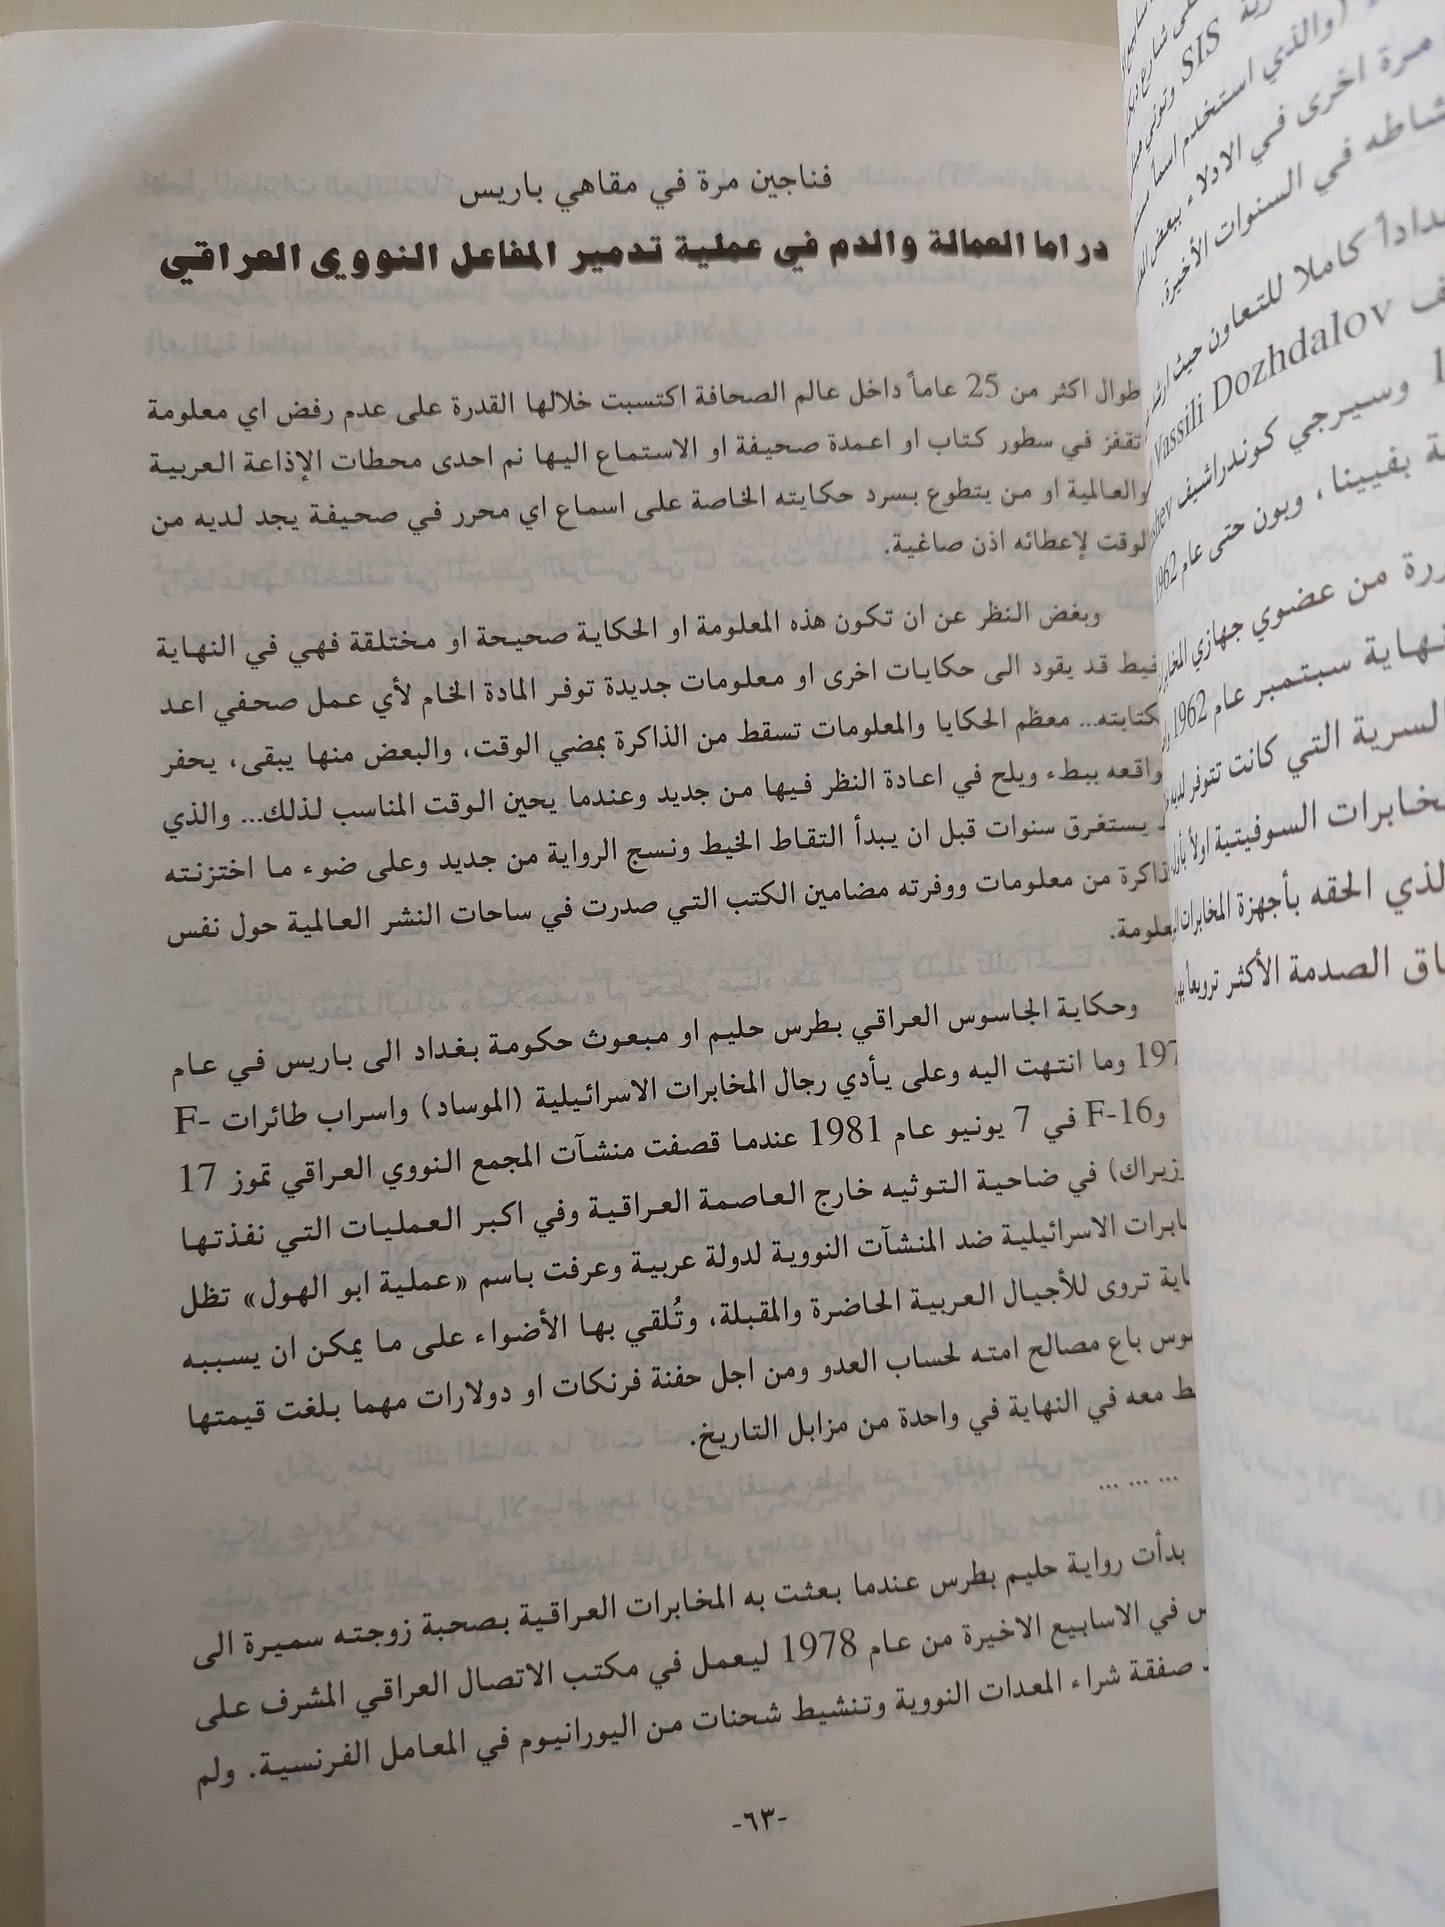 فناجين مرة في مقاهي باريس
دراما العمالة والدم في عملية تدمير المفاعل النووي العراقي
طوال اكثر من 25 عاماً داخل عالم الصحافة اكتسبت خلالها القدرة على عدم رفض اي معلومة
تقفز في سطور كتاب او اعمدة صحيفة او الاستماع اليها نم احدى محطات الإذاعة العربية
والعالمية او من يتطوع بسرد حكايته الخاصة على اسماع اي محرر في صحيفة يجد لديه من
الوقت لإعطائه اذن صاغية.
وبغض النظر عن ان تكون هذه المعلومة او الحكاية صحيحة او مختلقة فهي في النهاية
خيط قد يقود الى حكايات اخرى او معلومات جديدة توفر المادة الخام لأي عمل صحفي اعد
لكتابته... معظم الحكايا والمعلومات تسقط من الذاكرة بمضي الوقت، والبعض منها يبقى، يحفر
واقعه ببطء ويلح في اعادة النظر فيها من جديد وعندما يحين الوقت المناسب لذلك... والذي
يستغرق سنوات قبل ان يبدأ التقاط الخيط ونسج الرواية من جديد وعلى ضوء ما اختزنته
ذاكرة من معلومات ووفرته مضامين الكتب التي صدرت في ساحات النشر العالمية حول نفس
علومة.
وحكاية الجاسوس العراقي بطرس حليم او مبعوث حكومة بغداد الى باريس في عام
197 وما انتهت اليه وعلى يأدي رجال المخابرات الاسرائيلية (الموساد) واسراب طائرات F-
وF-16 في 7 يونيو عام 1981 عندما قصفت منشآت المجمع النووي العراقي تموز 17
زيراك) في ضاحية التوثيه خارج العاصمة العراقية وفي اكبر العمليات التي نفذتها
ابرات الاسرائيلية ضد المنشآت النووية لدولة عربية وعرفت باسم «عملية ابو الهول» تظل
اية تروى للأجيال العربية الحاضرة والمقبلة، وتُلقي بها الأضواء على ما يمكن ان يسببه
وس باع مصالح امته لحساب العدو ومن اجل حفنة فرنكات او دولارات مهما بلغت قيمتها
ط معه في النهاية في واحدة من مزابل التاريخ.
... ... ...
بدأت رواية حليم بطرس عندما بعثت به المخابرات العراقية بصحبة زوجته سميرة الى
س في الاسابيع الاخيرة من عام 1978 ليعمل في مكتب الاتصال العراقي المشرف على
صفقة شراء المعدات النووية وتنشيط شحنات من اليورانيوم في المعامل الفرنسية. ولم
-٦٣-
SIS وتوني
(والذي استخدم اسماً
مرة اخرى في الادلاء ببعض
شاطه في السنوات الأخيرة.
دداداً كاملا للتعاون حيث
ف Vassili Dozhdalov
وسيرجي كوندراشيف
ة بفيينا، وبون حتى عام 1962
ررة من عضوي جهازي
نهاية سبتمبر عام 1962
لسرية التي كانت تتوفر
خابرات السوفيتية اولاً
لذي الحقه بأجهزة المخابرات
اق الصدمة الأكثر ترويعاً